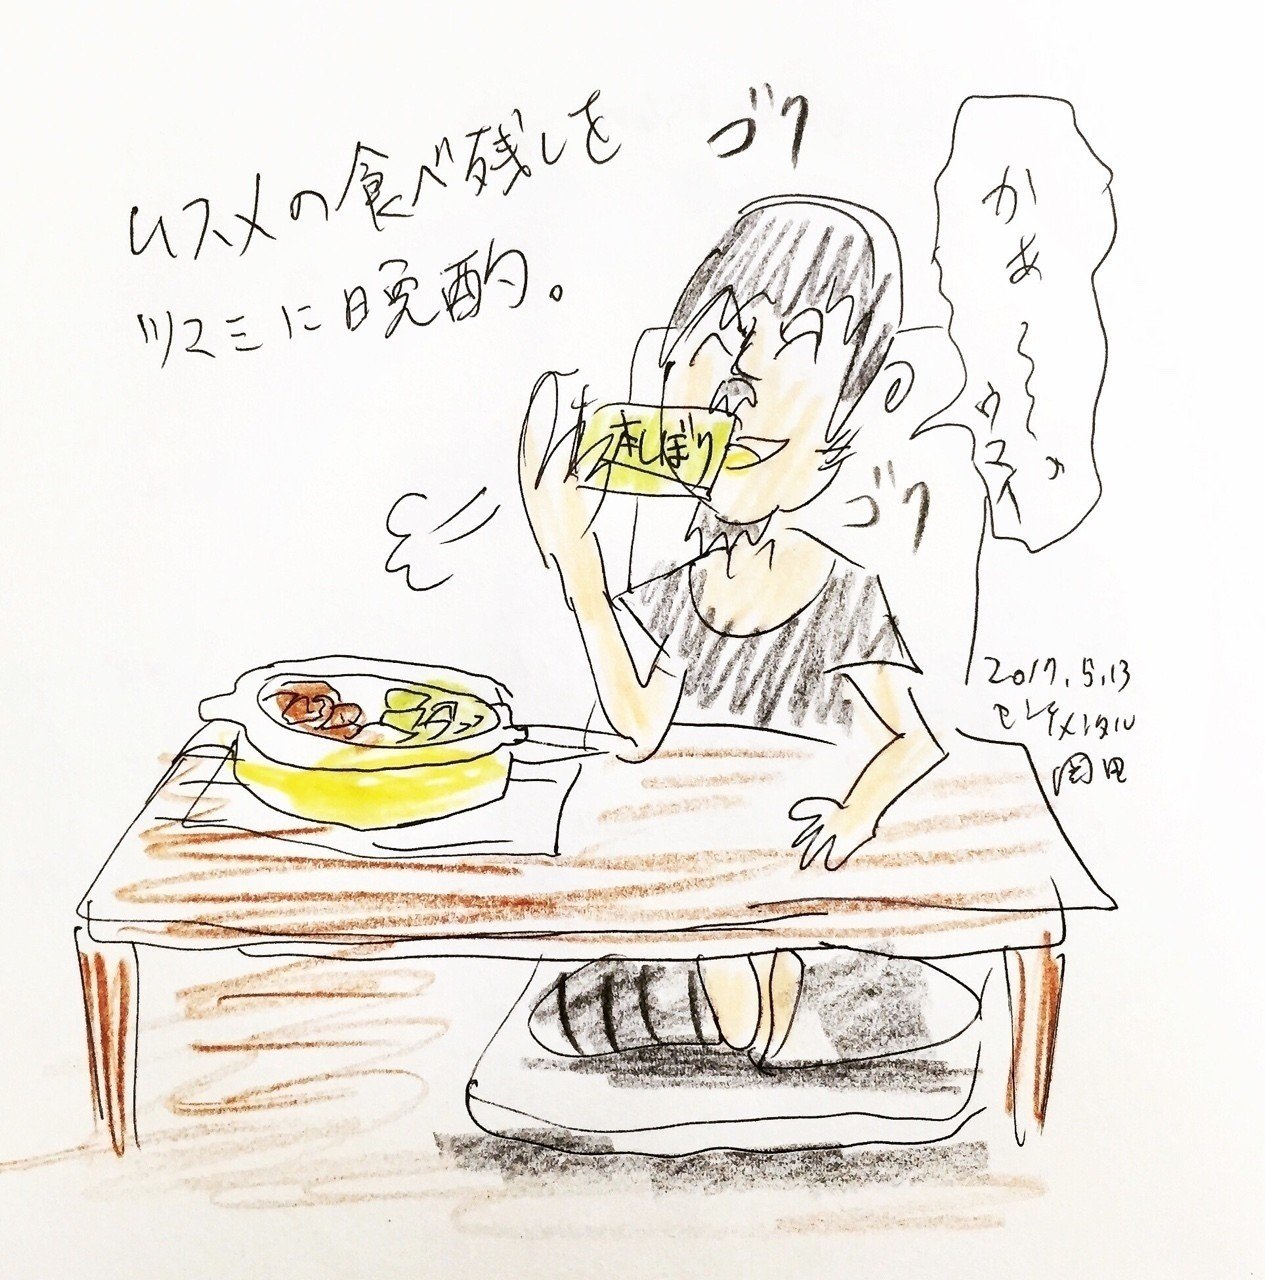 ムスメの食べ残しを
ツマミに晩酌。
ゴク
かぁ〜〜ウマイ
本しぼり
ゴク
2017.5.13
センチメンタル
岡田